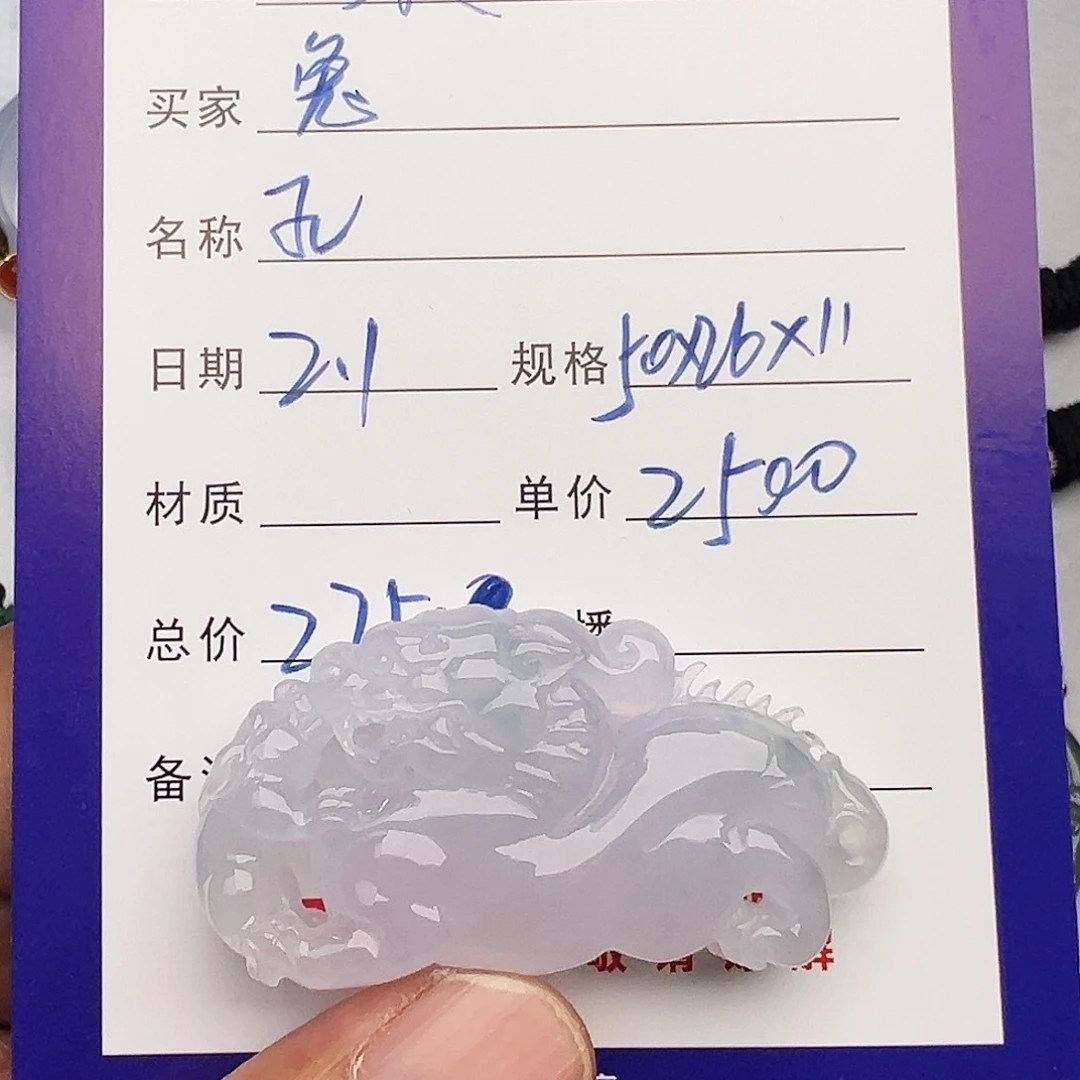 买家 兔
名称 孔
日期 2.1 规格 50x26x11
材质 单价 2500
总价 275
备